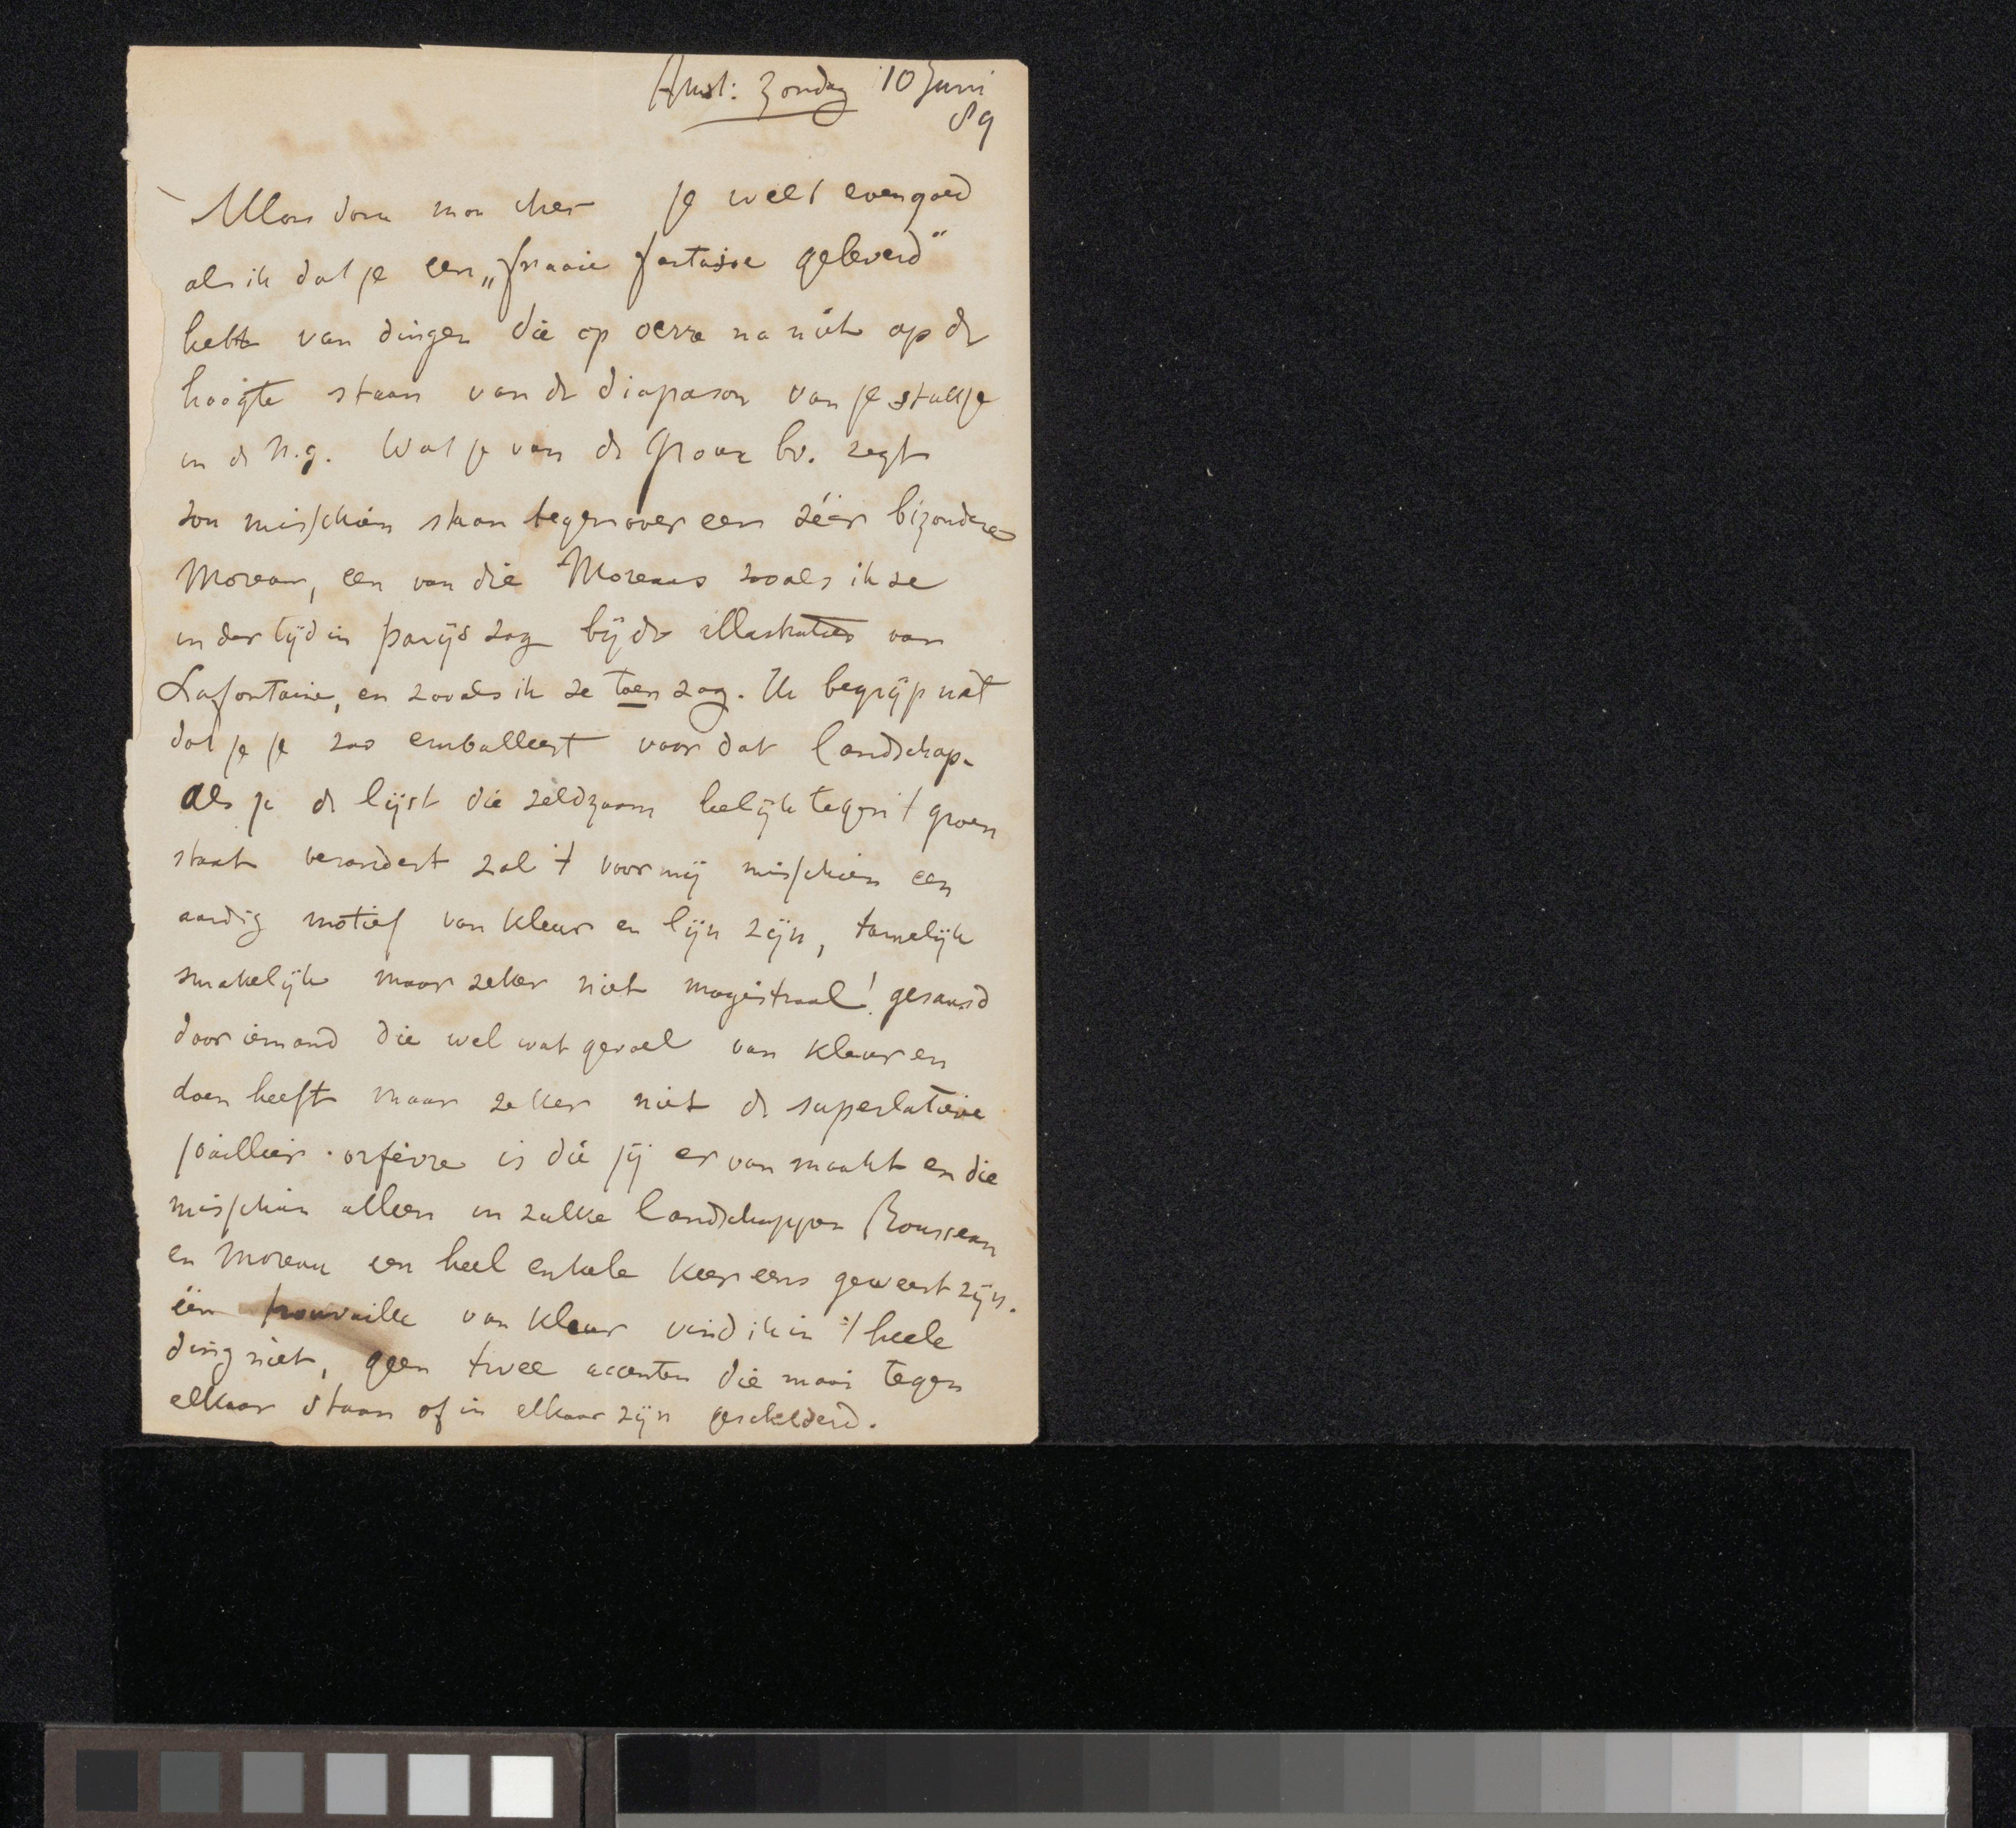 Amst: Zondag 10 Juni
89
Allons donc mon cher je weet evengoed
als ik dat je een „fraaie fantaisie geleverd"
hebt van dingen die op verre na niet op de
hoogte staan van de diapason van je stukje
in de N.g. Wat je van de Groux bv. zegt
zou misschien staan tegenover een zéér bizondere
Moreau, een van die Moreaus zooals ik ze
indertijd in parijs zag bij de illustraties van
Lafontaine, en zooals ik ze toen zag. Ik begrijp niet
dat je je zoo emballeert voor dat landschap.
Als je de lijst die zeldzaam leelijk tegen 't groen
staat verandert zal 't voor mij misschien een
aardig motief van kleur en lijn zijn, tamelijk
smakelijk maar zeker niet magistraal! gesausd
door iemand die wel wat gevoel van kleur en
doen heeft maar zeker niet de superlatieve
joaillier-orfèvre is die jij er van maakt en die
misschien alleen in zulke landschappen Rousseau
en Moreau een heel enkele keer eens geweest zijn.
één trouvaille van kleur vind ik in 't heele
ding niet, geen twee accenten die mooi tegen
elkaar staan of in elkaar zijn geschilderd.